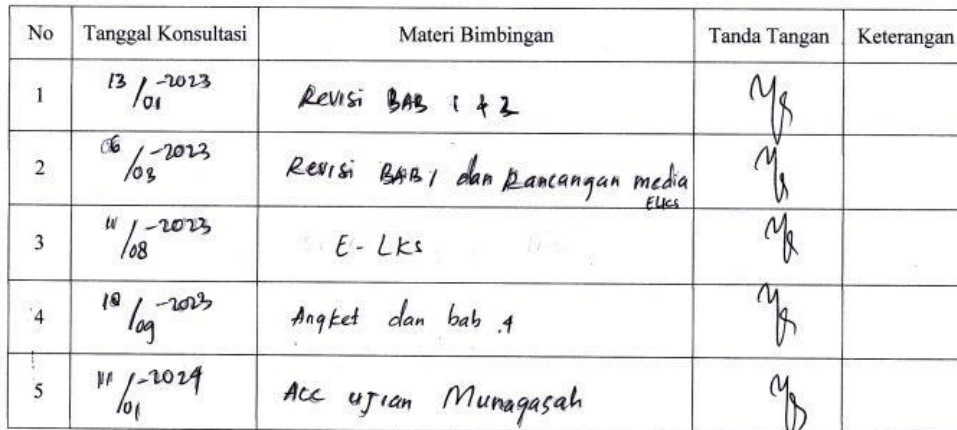 No Tanggal Konsultasi Materi Bimbingan Tanda Tangan Keterangan
1 13/01-2023 Revisi BAB 1 & 2
2 06/03-2023 Revisi BAB 1 dan Rancangan media
ELKS
3 /08-2023 E-LKs
4 /09-2023 Angket dan bab 4
5 /01-2024 Acc ujian Munaqasah